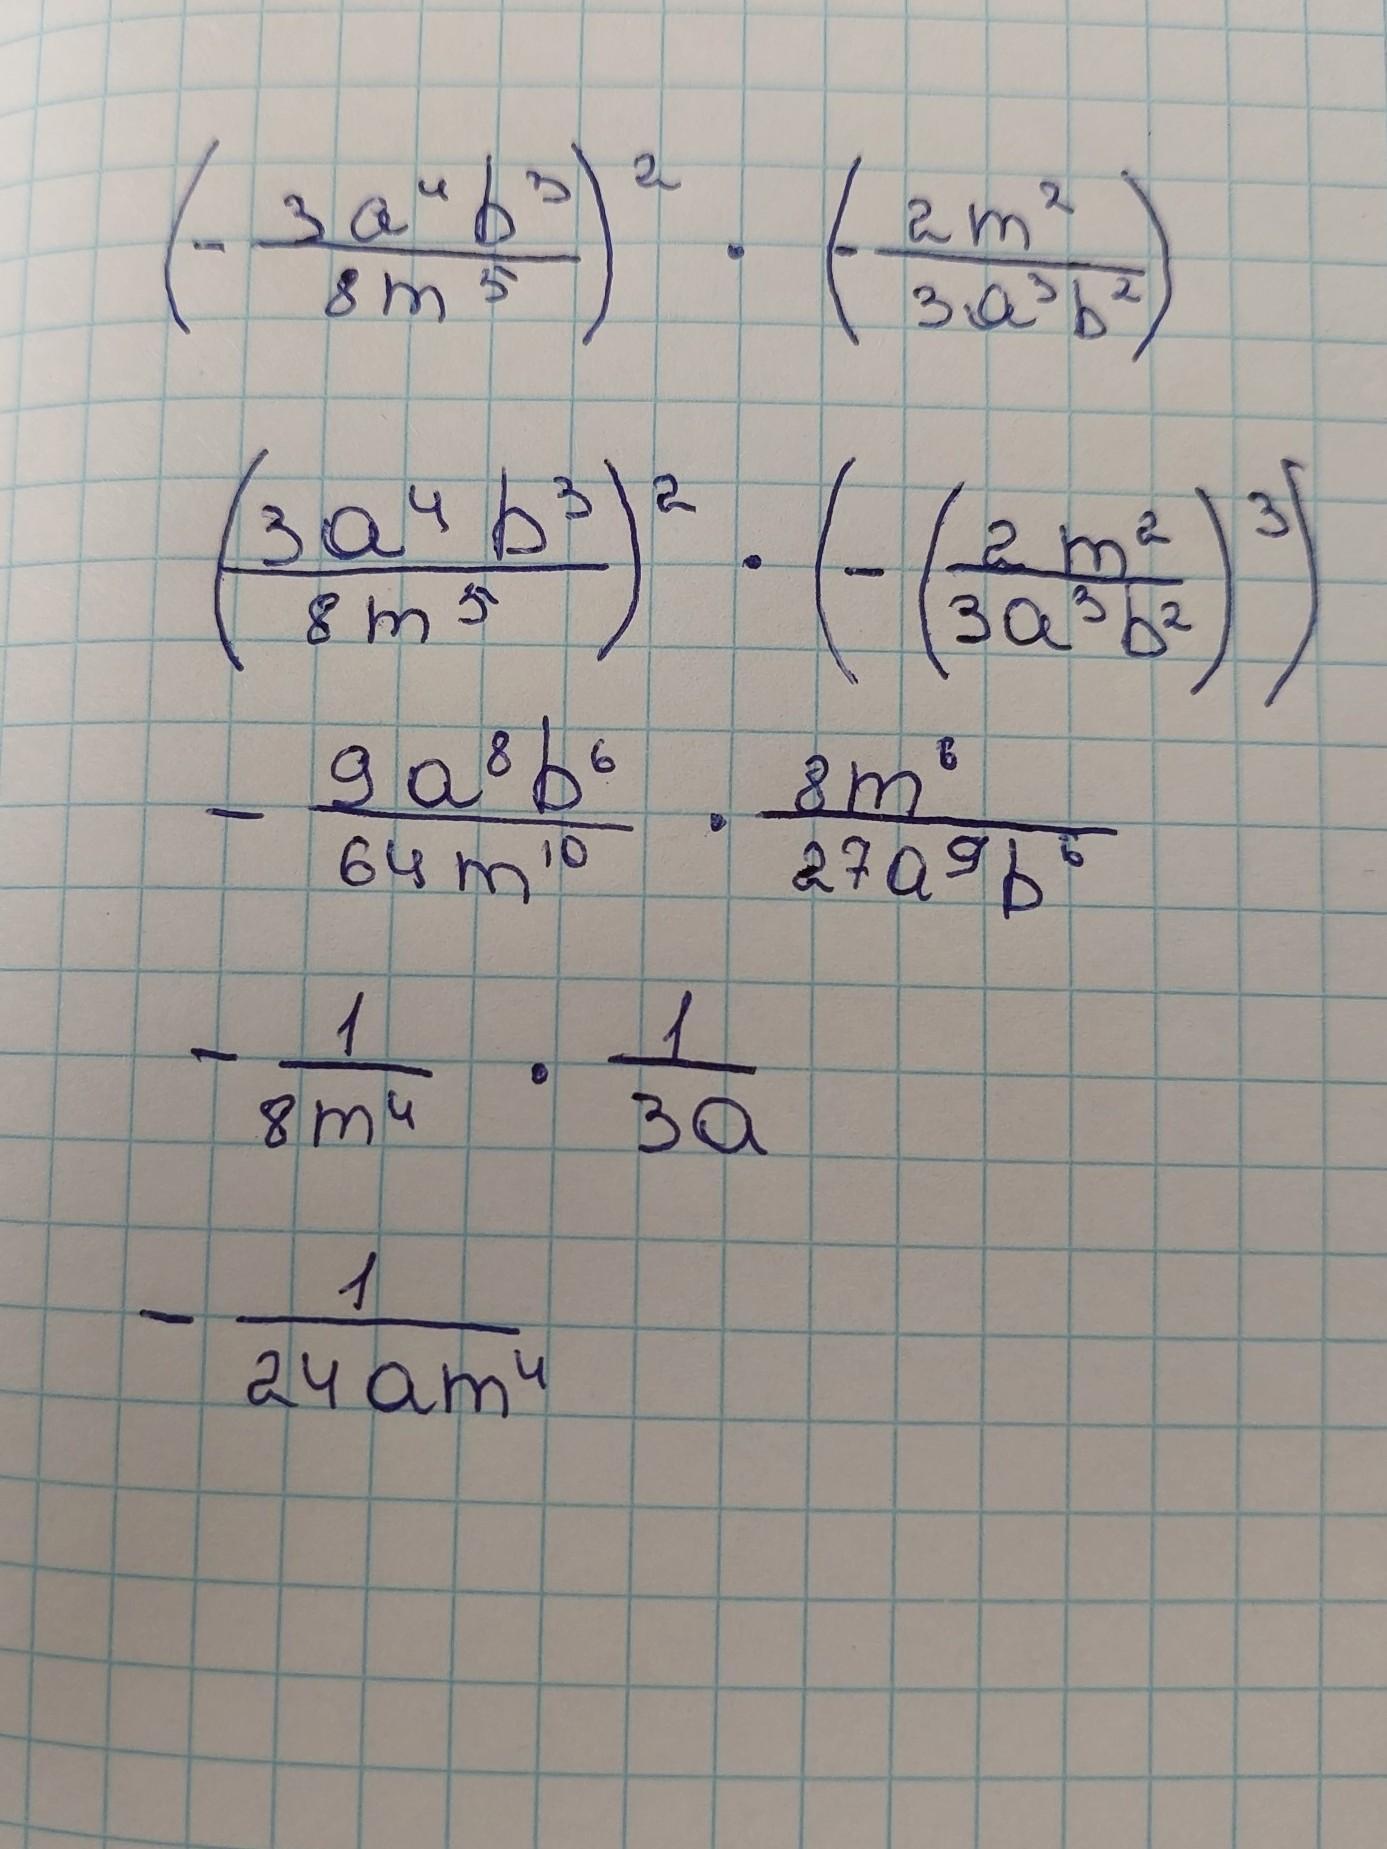 (-3a⁴b³/8m⁵)² · (-2m²/3a³b²)
(3a⁴b³/8m⁵)² · (-(2m²/3a³b²)³)
-9a⁸b⁶/64m¹⁰ · 8m⁶/27a⁹b⁶
-1/8m⁴ · 1/3a
-1/24am⁴